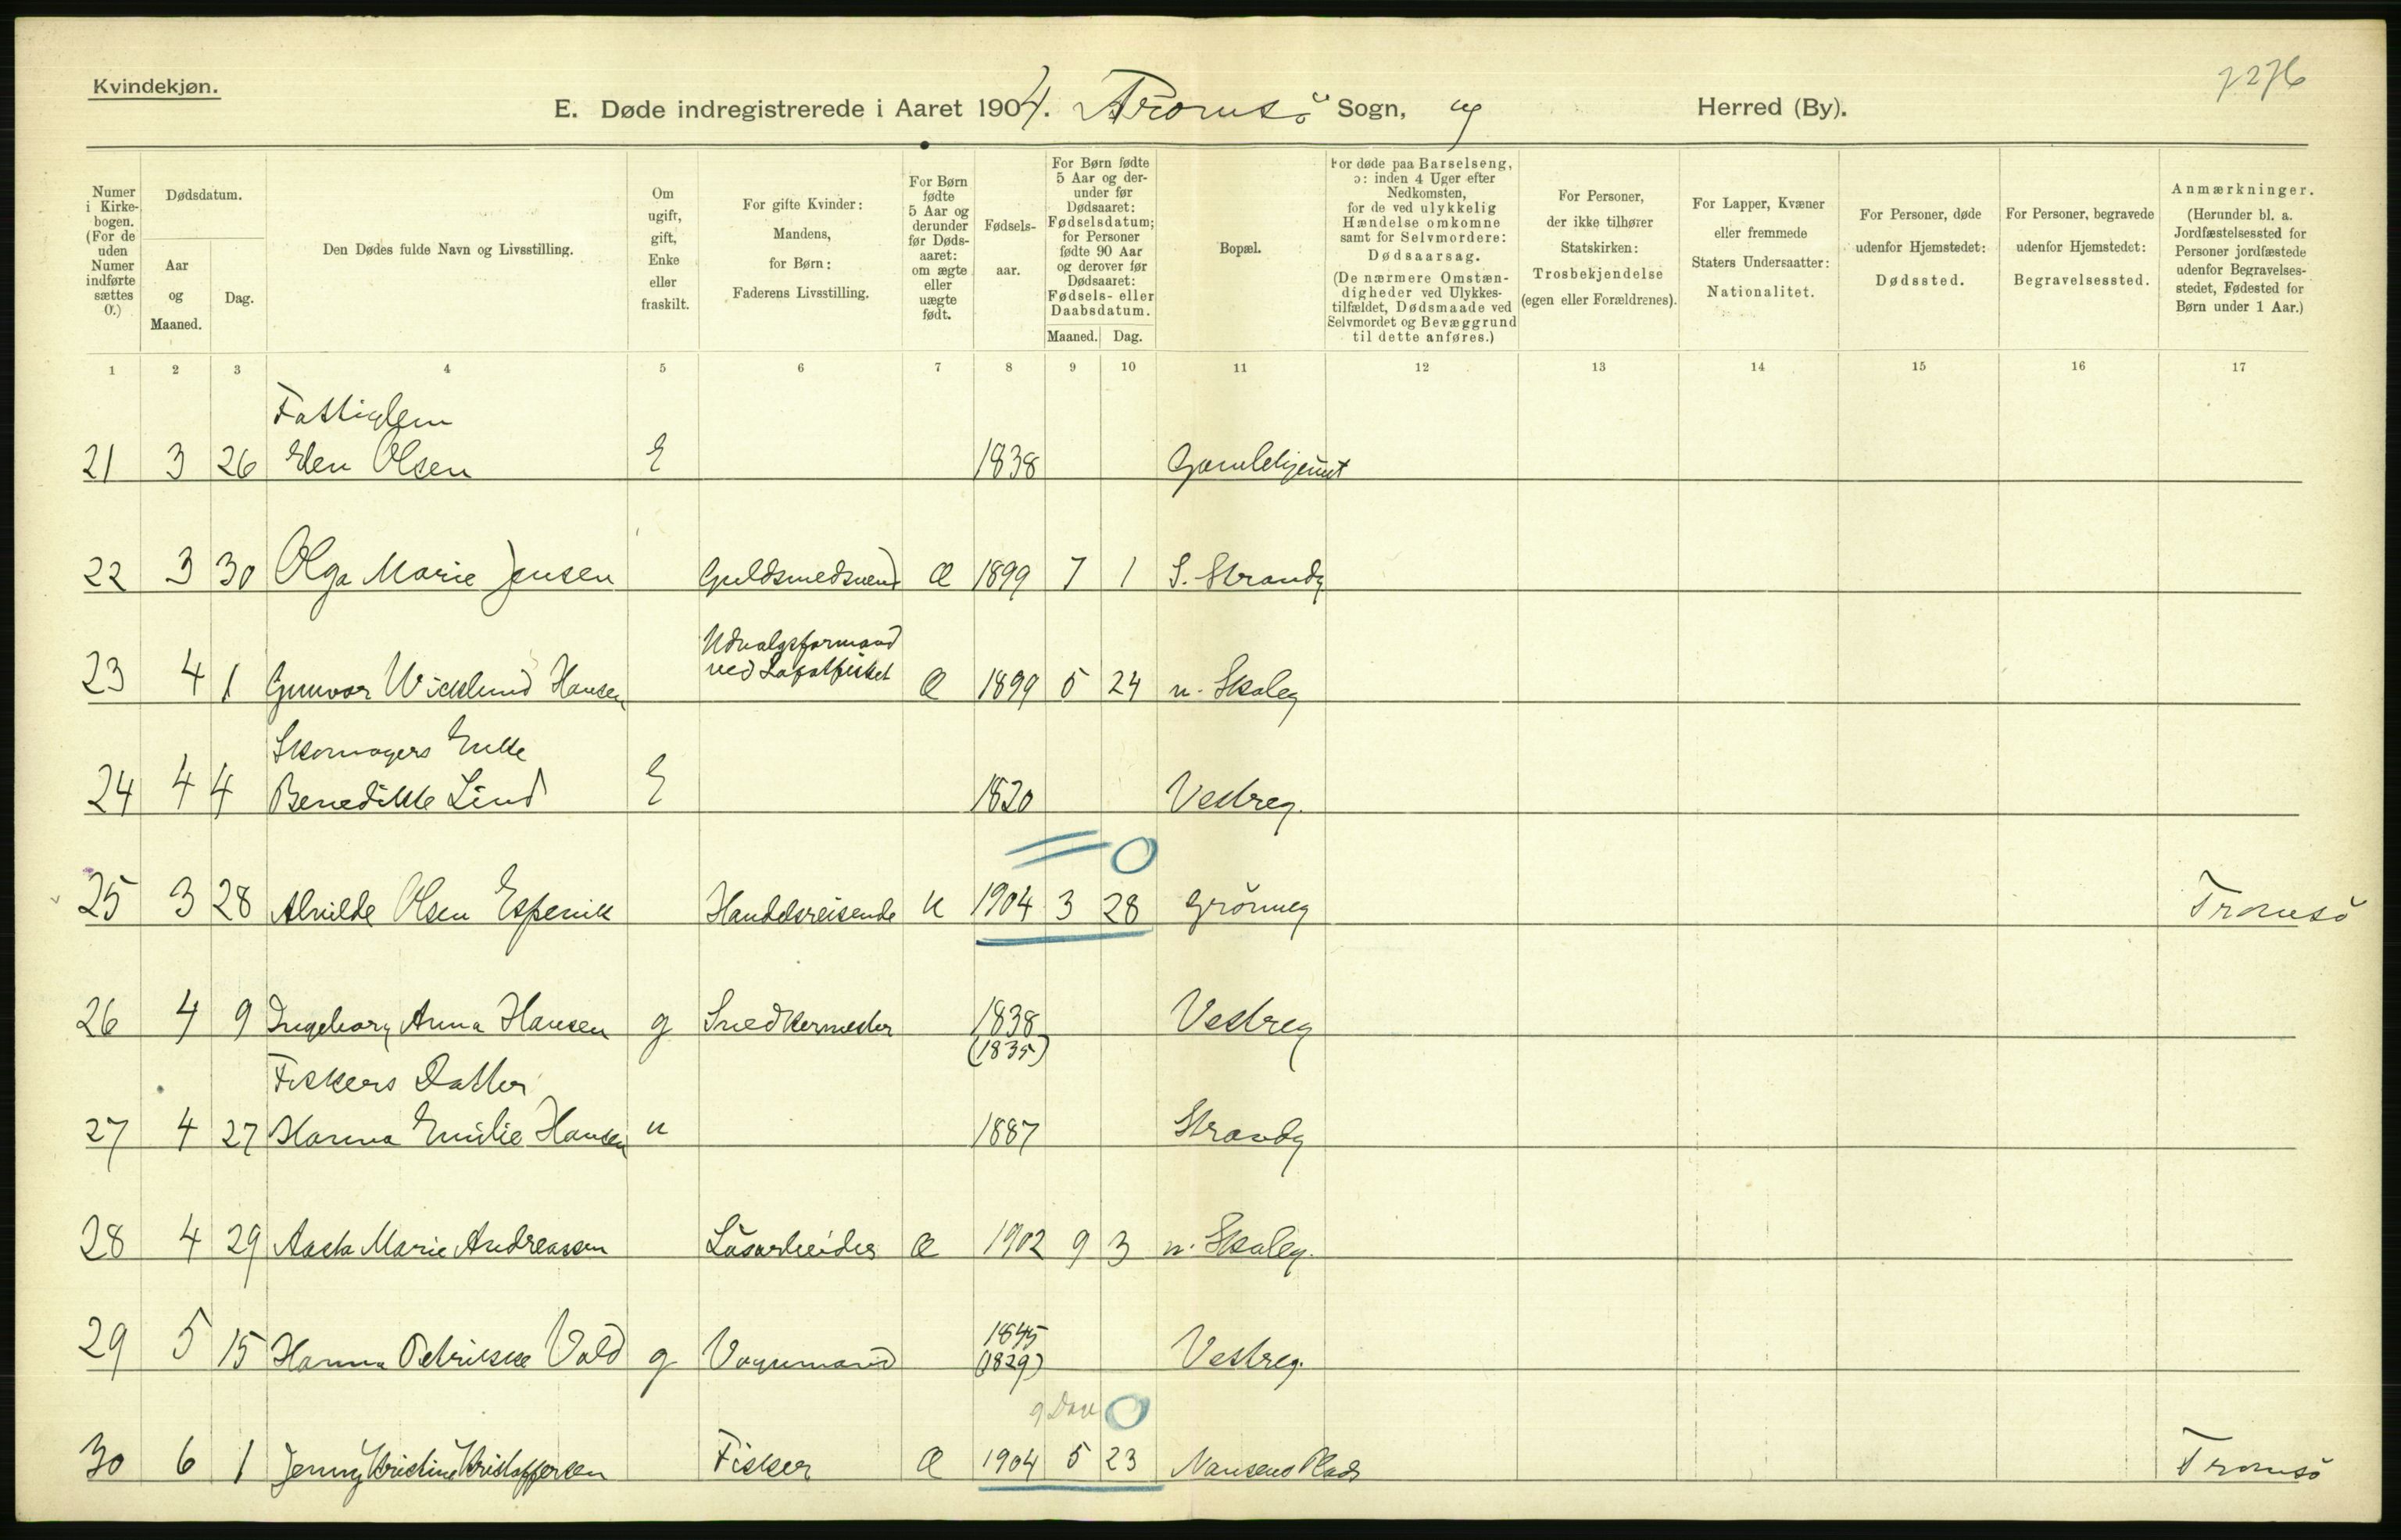 Kvindekjøn.
7276
E. Døde indregistrerede i Aaret 1904. Tromsö Sogn, og Herred (By).
Numer i Kirkebogen. (For de uden Numer indførte sættes 0.)
Dødsdatum.
Aar og Maaned.
Dag.
Den Dødes fulde Navn og Livsstilling.
Om ugift, gift, Enke eller fraskilt.
For gifte Kvinder: Mandens, for Børn: Faderens Livsstilling.
For Børn fødte 5 Aar og derunder før Døds-aaret: om ægte eller uægte født.
Fødsels-aar.
For Børn fødte 5 Aar og der-under før Dødsaaret: Fødselsdatum; for Personer fødte 90 Aar og derover før Dødsaaret: Fødsels- eller Daabsdatum.
Maaned. Dag.
Bopæl.
For døde paa Barselseng, ɔ: inden 4 Uger efter Nedkomsten, for de ved ulykkelig Hændelse omkomne samt for Selvmordere: Dødsaarsag. (De nærmere Omstæn-digheder ved Ulykkes-tilfældet, Dødsmaade ved Selvmordet og Bevæggrund til dette anføres.)
For Personer, der ikke tilhører Statskirken: Trosbekjendelse (egen eller Forældrenes).
For Lapper, Kvæner eller fremmede Staters Undersaatter: Nationalitet.
For Personer, døde udenfor Hjemstedet: Dødssted.
For Personer, begravede udenfor Hjemstedet: Begravelsessted.
Anmærkninger. (Herunder bl. a. Jordfæstelsessted for Personer jordfæstede udenfor Begravelses-stedet, Fødested for Børn under 1 Aar.)
1 2 3 4 5 6 7 8 9 10 11 12 13 14 15 16 17
Fattiglem
21 3 26 Elen Olsen E 1838 Gamlehjemmet
22 3 30 Olga Marie Jensen Guldsmedsvend Æ 1899 7 1 S. Strandg
Udvalgsformand
ved Lofotfisket
23 4 1 Gunvor Wicklund Hansen Æ 1899 5 24 n. Skoleg
Skomagers Enke
24 4 4 Benedikte Lind E 1820 Vestreg.
0
25 3 28 Alvilde Olsen Espenik Handelsreisende u 1904 3 28 Grönneg Tromsö
26 4 9 Ingeborg Anna Hansen g Snedkermester 1838 Vestreg
(1835)
Fiskers Datter
27 4 27 Hanna Emilie Hansen u 1887 Strandg
28 4 29 Aasta Marie Andreassen Lösarbeider Æ 1902 9 3 n. Skoleg.
1845
29 5 15 Hanna Petrikke Vold g Vognmand (1829) Vestreg.
9 Dage 0
30 6 1 Jenny Kristine Kristoffersen Fisker Æ 1904 5 23 Nansens Plads Tromsö